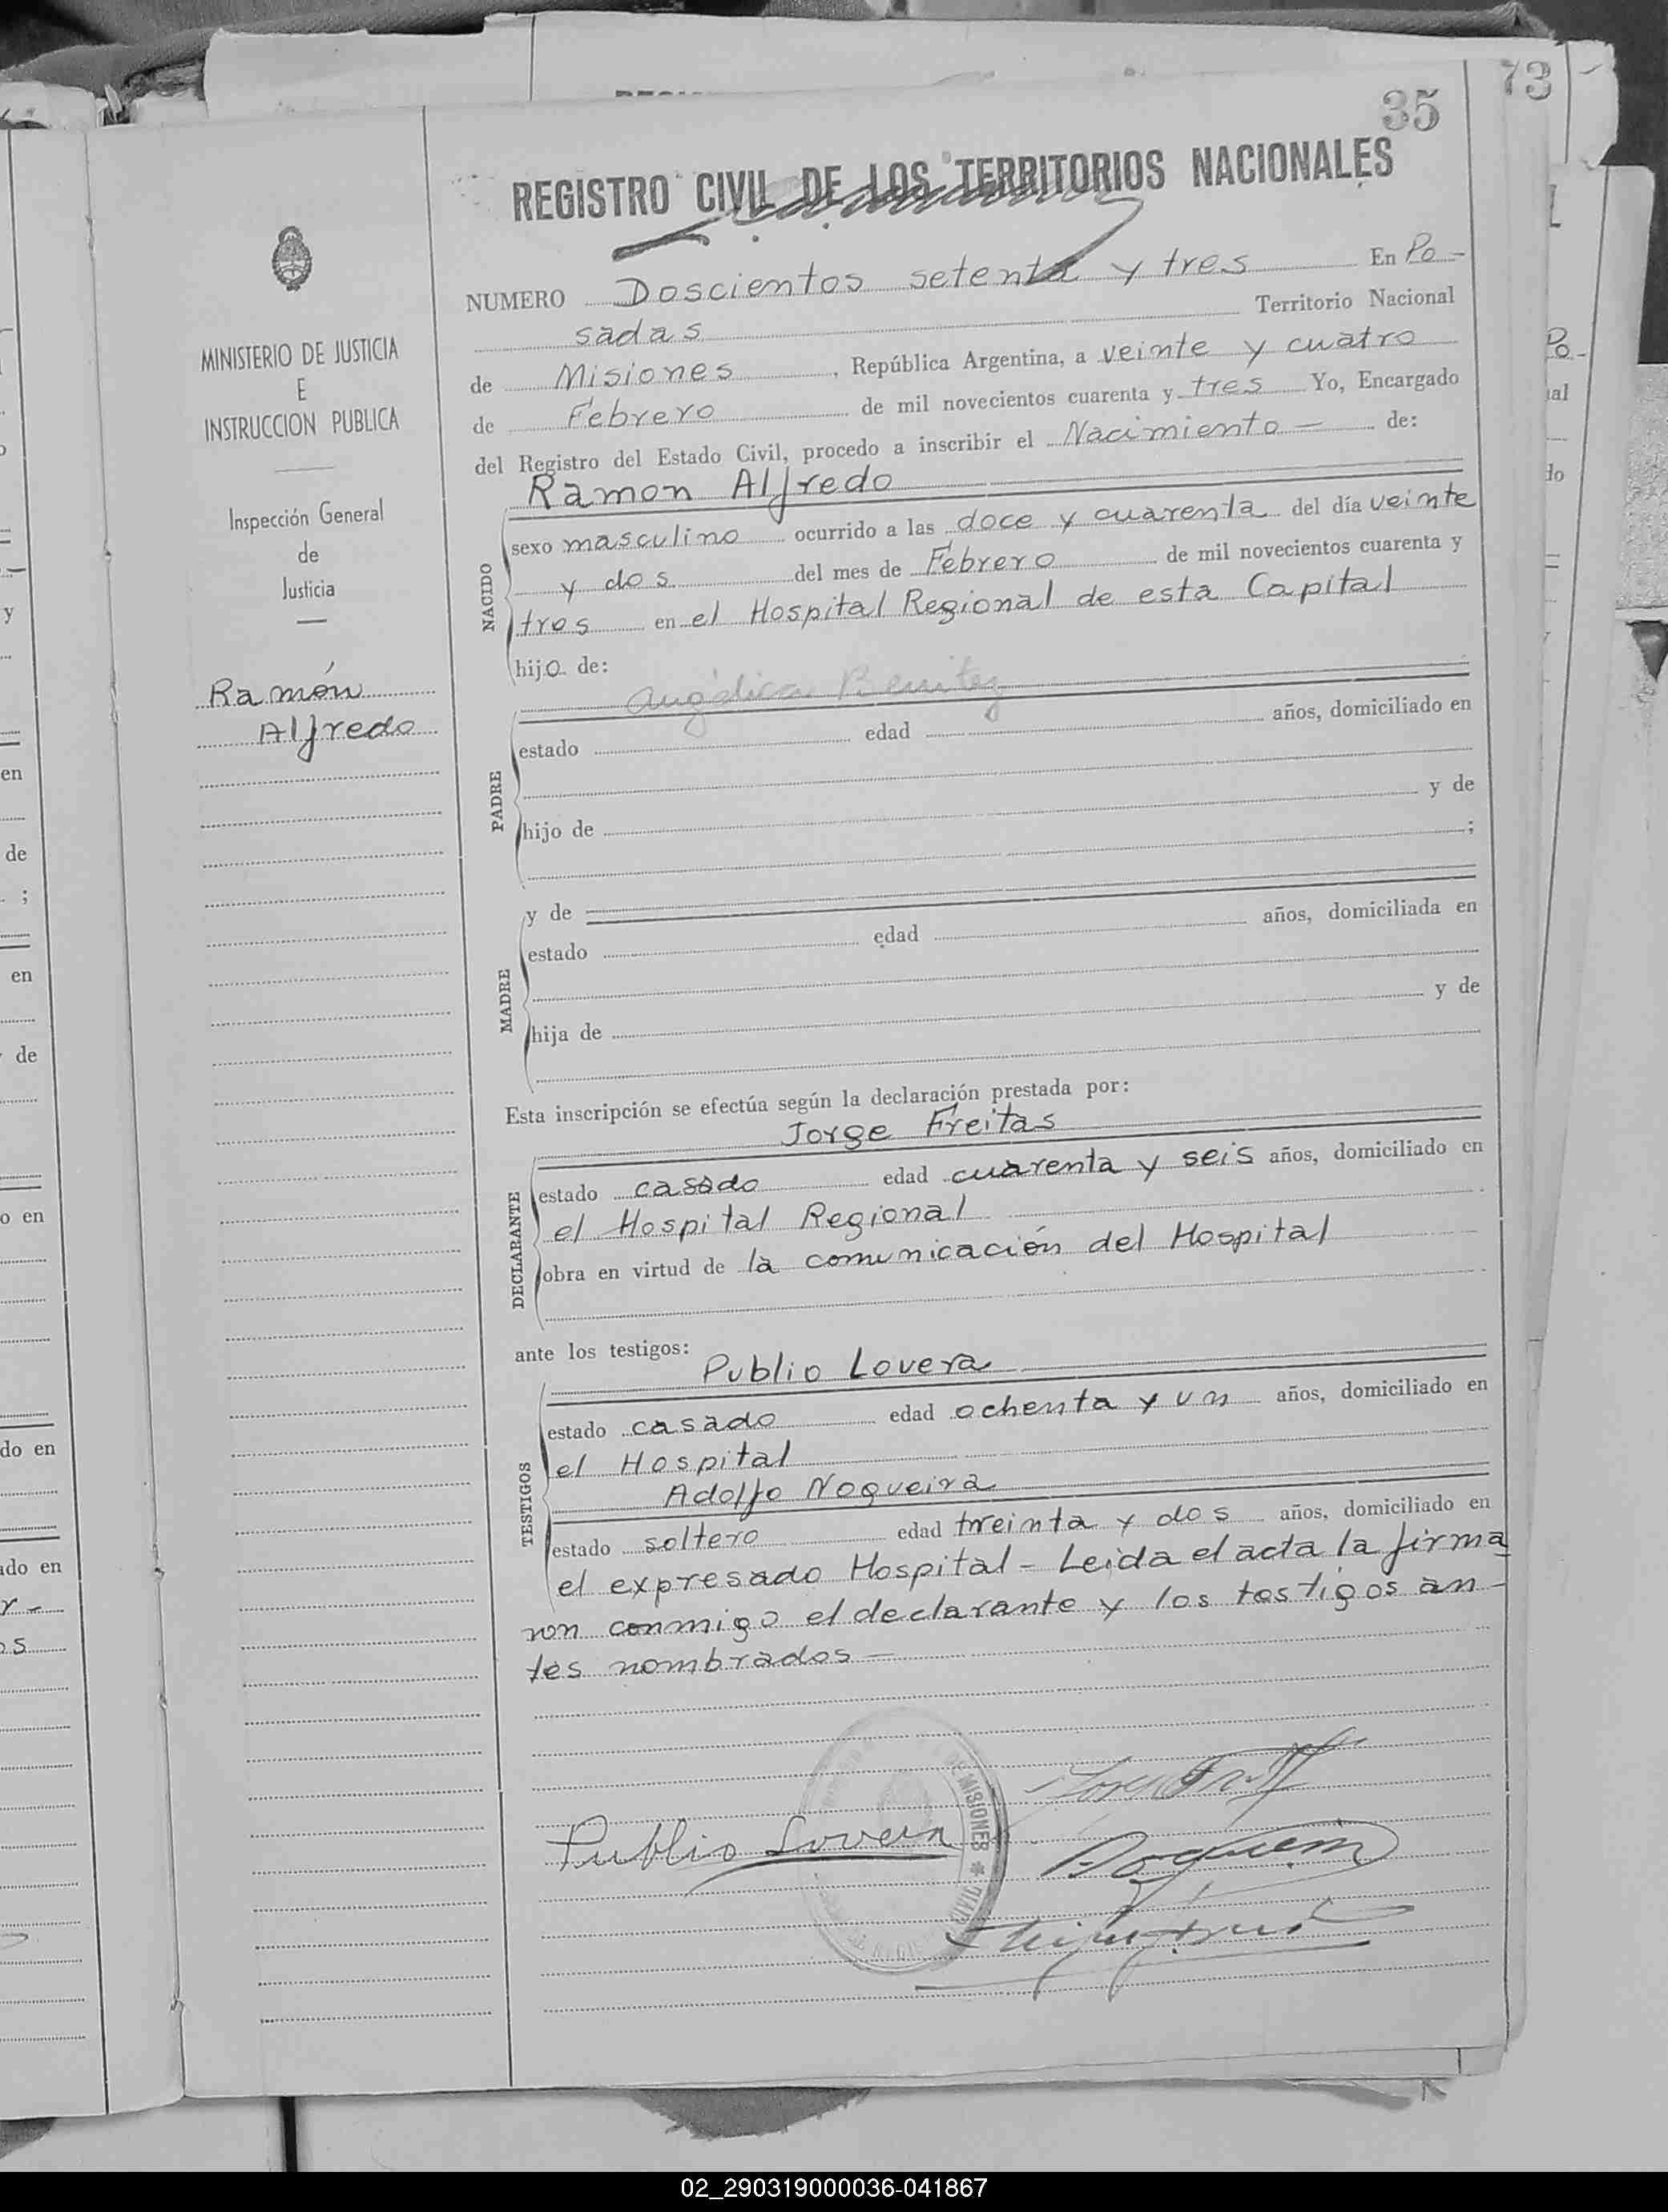 35
73
REGISTRO CIVIL DE LOS TERRITORIOS NACIONALES
NUMERO Doscientos setenta y tres En Po-
sadas Territorio Nacional
de Misiones, República Argentina, a veinte y cuatro
de Febrero de mil novecientos cuarenta y tres Yo, Encargado
del Registro del Estado Civil, procedo a inscribir el Nacimiento — de:
MINISTERIO DE JUSTICIA
E
INSTRUCCION PUBLICA
Inspección General
de
Justicia
Ramón
Alfredo
NACIDO
Ramon Alfredo
sexo masculino ocurrido a las doce y cuarenta del día veinte
y dos del mes de Febrero de mil novecientos cuarenta y
tres en el Hospital Regional de esta Capital
hijo de:
PADRE
Angélica Benitez
estado edad años, domiciliado en
hijo de y de
;
MADRE
y de
estado edad años, domiciliada en
hija de y de
Esta inscripción se efectúa según la declaración prestada por:
DECLARANTE
Jorge Freitas
estado casado edad cuarenta y seis años, domiciliado en
el Hospital Regional
obra en virtud de la comunicación del Hospital
ante los testigos:
TESTIGOS
Publio Lovera
estado casado edad ochenta y un años, domiciliado en
el Hospital
Adolfo Nogueira
estado soltero edad treinta y dos años, domiciliado en
el expresado Hospital - Leida el acta la firma
ron conmigo el declarante y los testigos an-
tes nombrados —
DE MISIONES *
Publio Lovera
02_290319000036-041867